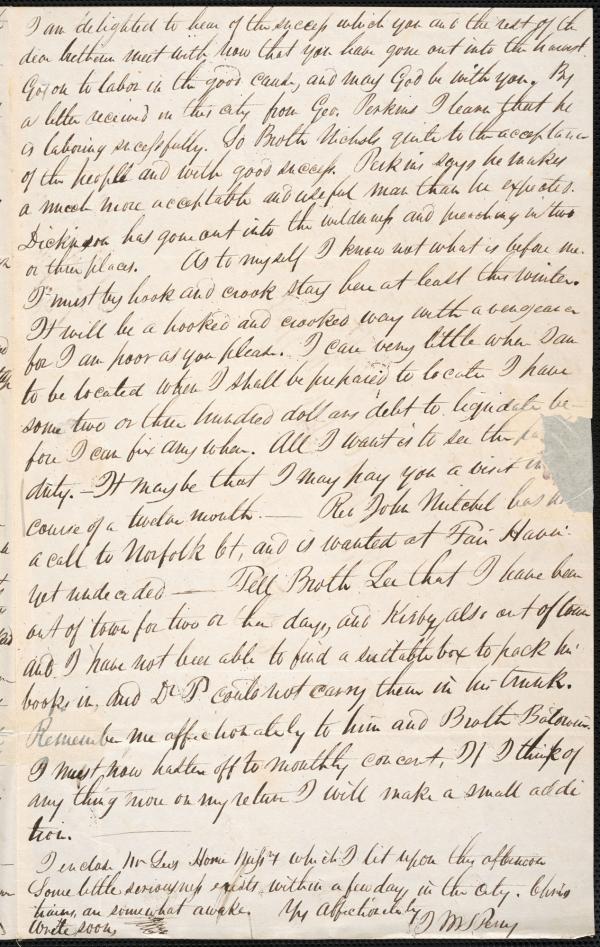 I am delighted to hear of the success which you and the rest of th
dear brethren meet with, now that you have gone out into the harvest.
Go on to labor in the good cause, and may God be with you. By
a letter received in this city from Geo. Perkins I learn that he
is laboring sucessfully. So Broth Nichols quite to the acceptance
of the people and with good success. Perkins says he makes
a much more acceptable and useful man than he expected.
Dickinson has gone out into the wilderness and preaching in two
or three places. As to myself I know not what is before me.
I must by hook and crook stay here at least this winter.
It will be a hooked and crooked way with a vengeance
for I am poor as you please. I care very little where I am
to be located when I shall be prepared to locate. I have
some two or three hundred dollars debt to liquidate be-
fore I can fix any where. All I want is to see the
duty. — It may be that I may pay you a visit in
course of a twelve month. — Rev John Mitchel has
a call to Norfolk Ct, and is wanted at Fair Haven.
yet undecided — Tell Broth Lee that I have been
out of town for two or three days, and Kirby also out of town
and I have not been able to find a suitable box to pack his
books in, and Dr P. could not carry them in his trunk.
Remember me affectionately to him and Broth Baldwin.
I must now hasten off to monthly concert. If I think of
any thing more on my return I will make a small addi
tion.
I enclose Mr Lees Home Missy which I lit upon this afternoon
Some little seriousness exists within a few days in the city. Chris
tians are somewhat awake. Yrs affectionately
Write soon J M S Perry